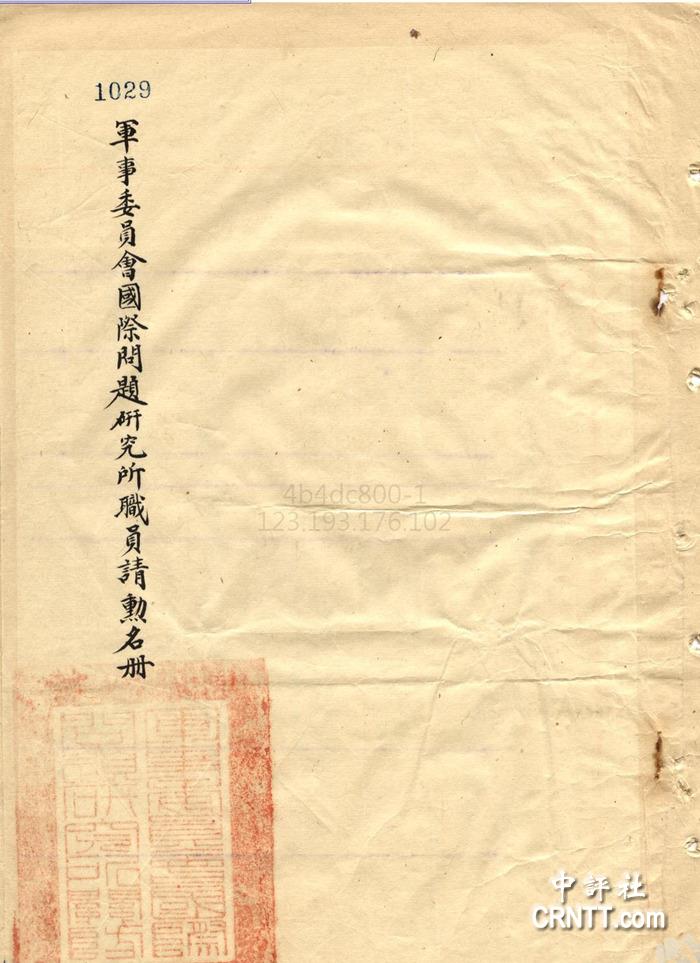 1029
軍事委員會國際問題研究所職員請勲名册
4b4dc800-1
123.193.176.102
中評社
CRNTT.com